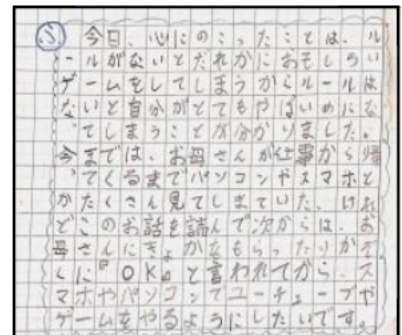 ふ 今日、心にのこったことは、ル
ールがないとだれかにおもしろい
ゲームをしてしまうからルールは
ないと自分がとてもやばいめにな
ってしまうことが分かりました。
今までは、お母さんが仕事から帰
ってくるまでパソコンやスマホと
かたくさん見てしまていた、けれ
どこのお話を読んで次からは、お
母さんにきょかをもらったりかぞ
くに『OK』と言われてから、ス
マホやパソコンでユーチューブや
ゲームをやるようにしたいです。